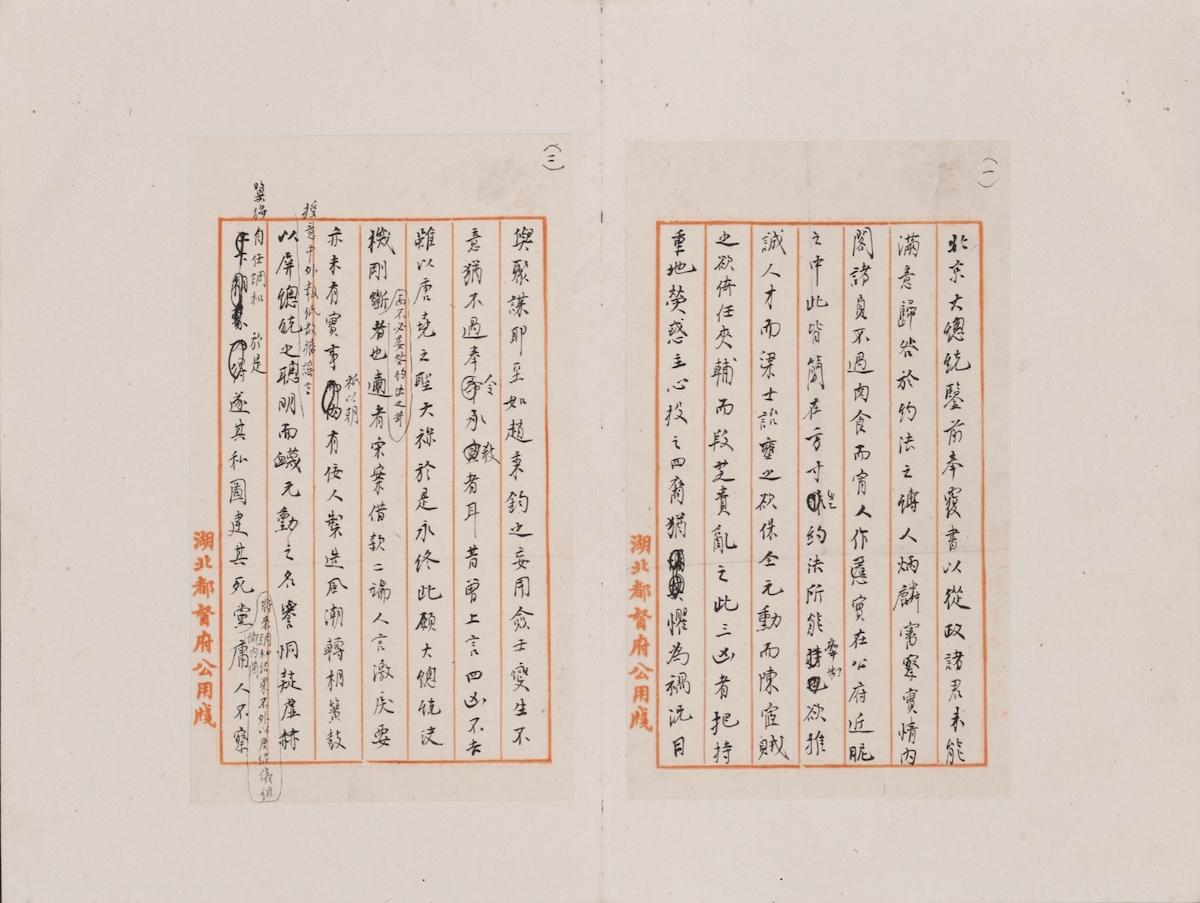 (一)
北京大總統鑒前奉覆書以從政諸君未能
滿意歸咎於約法之縛人炳麟審察實情內
閣諸員不過肉食而宵人作慝實在公府近昵
之中此皆簡在方寸豈約法所能牽制欲推
誠人才而梁士詒壅之欲保全元勳而陳宧賊
之欲倚任夾輔而段芝貴亂之此三凶者把持
重地熒惑主心投之四裔猶懼為禍況日
湖北都督府公用牋
(三)
與聚謀耶至如趙秉鈞之妄用僉壬變生不
意猶不過奉令承教者耳昔曾上言四凶不去
雖以唐堯之聖天祿於是永終此願大總統決
機剛斷者也
而不必妄咎約法之苛
適者宋案借款二端人言激戾要
亦未有實事祇以朝有佞人製造風潮轉相簧鼓
授意中外報紙故播謠言
以屏總統之聰明而衊元勳之名譽恫疑虛赫
冀得自任調和於是
遂其私圖建其死黨庸人不察
將來調和結果不外以唐紹儀組
織內閣
湖北都督府公用牋